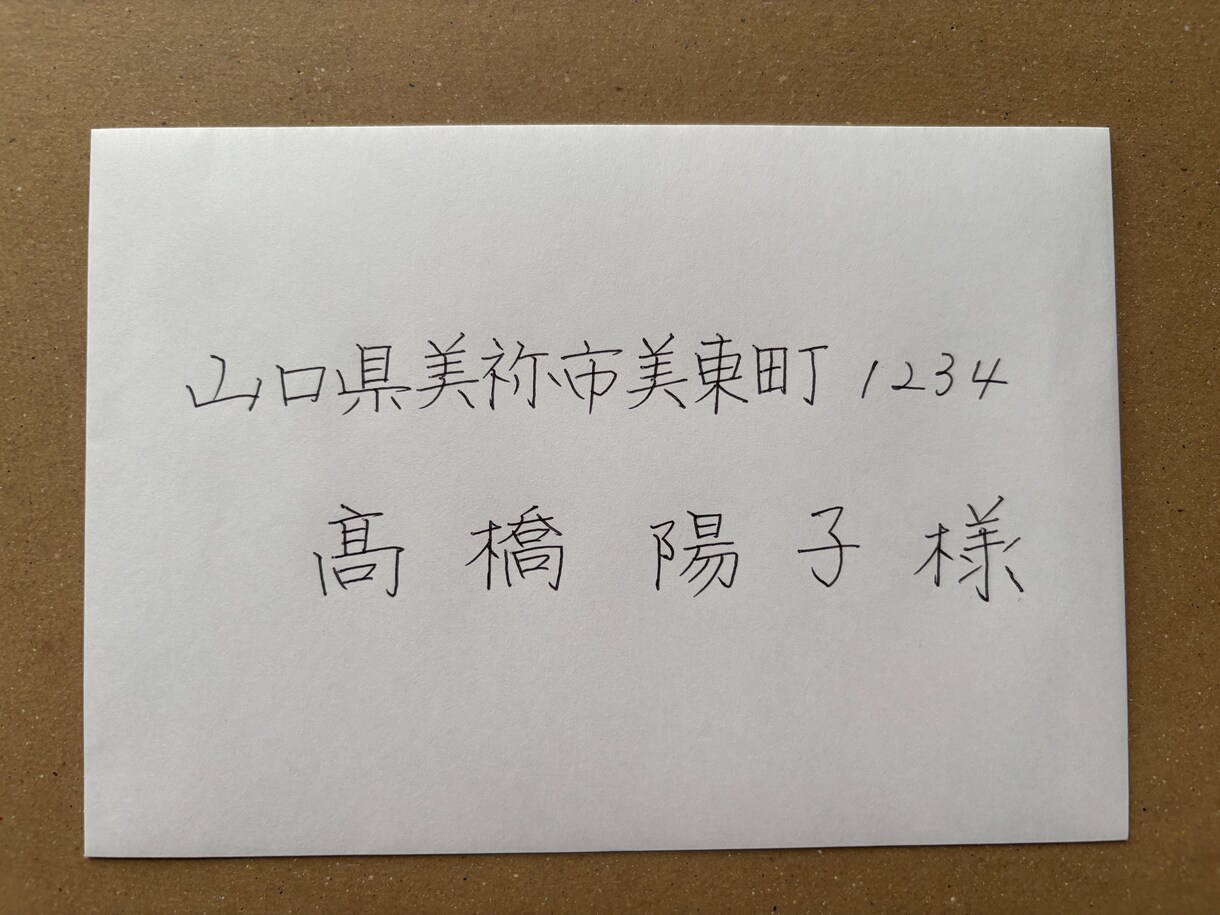 山口県美祢市美東町 1234
髙橋陽子様